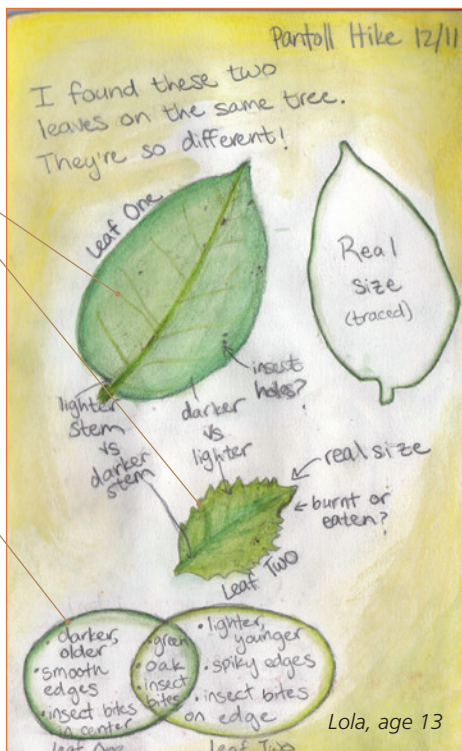 Pantoll Hike 12/11
I found these two
leaves on the same tree.
They're so different!
Leaf One
Real
size
(traced)
insect
holes?
lighter
stem
vs
darker
stem
darker
vs
lighter
real size
burnt or
eaten?
Leaf Two
• darker,
older
• smooth
edges
• insect bites
in center
• green
• oak
• insect
bites
• lighter,
younger
• spiky edges
• insect bites
on edge
Leaf One
Leaf Two
Lola, age 13